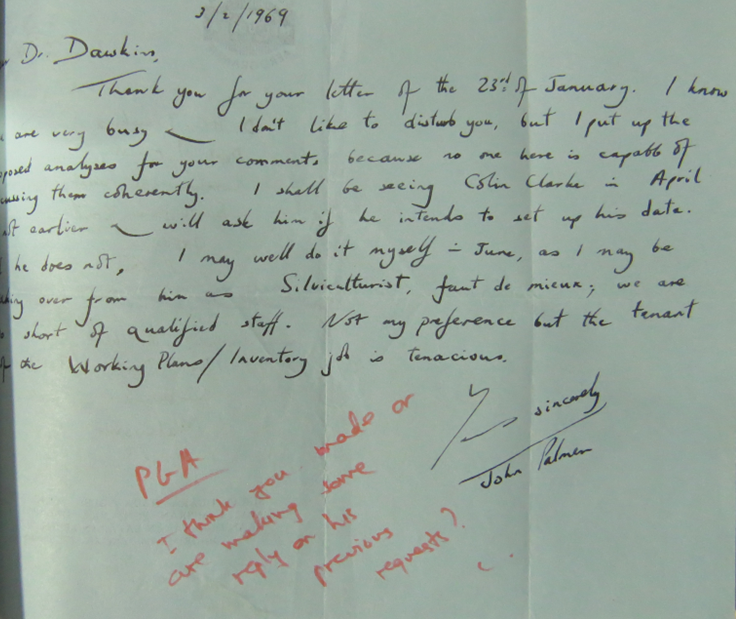 3/2/1969
Dr. Dawkins,
Thank you for your letter of the 23rd of January. I know
are very busy — I don't like to disturb you, but I put up the
posed analyses for your comments because no one here is capable of
cussing them coherently. I shall be seeing Colin Clarke in April
not earlier — will ask him if he intends to set up his data.
he does not, I may well do it myself in June, as I may be
king over from him as Silviculturist, faut de mieux; we are
short of qualified staff. Not my preference but the tenant
of the Working Plans/Inventory job is tenacious.
Yrs sincerely
John Palmer
PGA
I think you made or
are making some
reply on his
previous
requests?